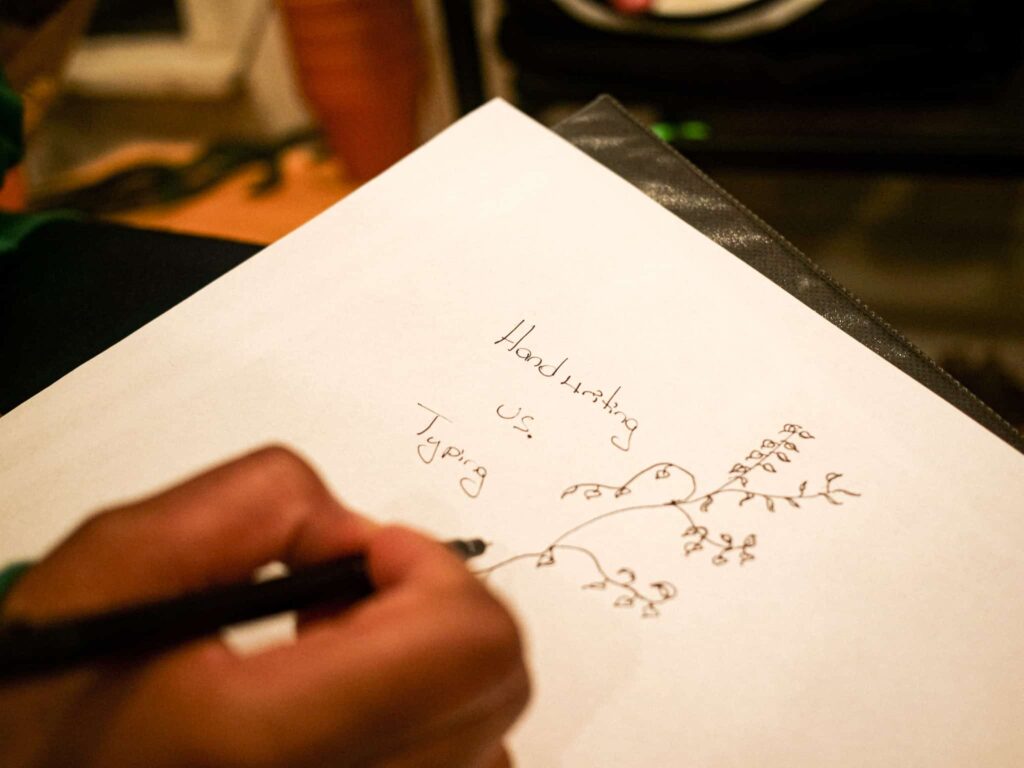 Handwriting
vs.
Typing